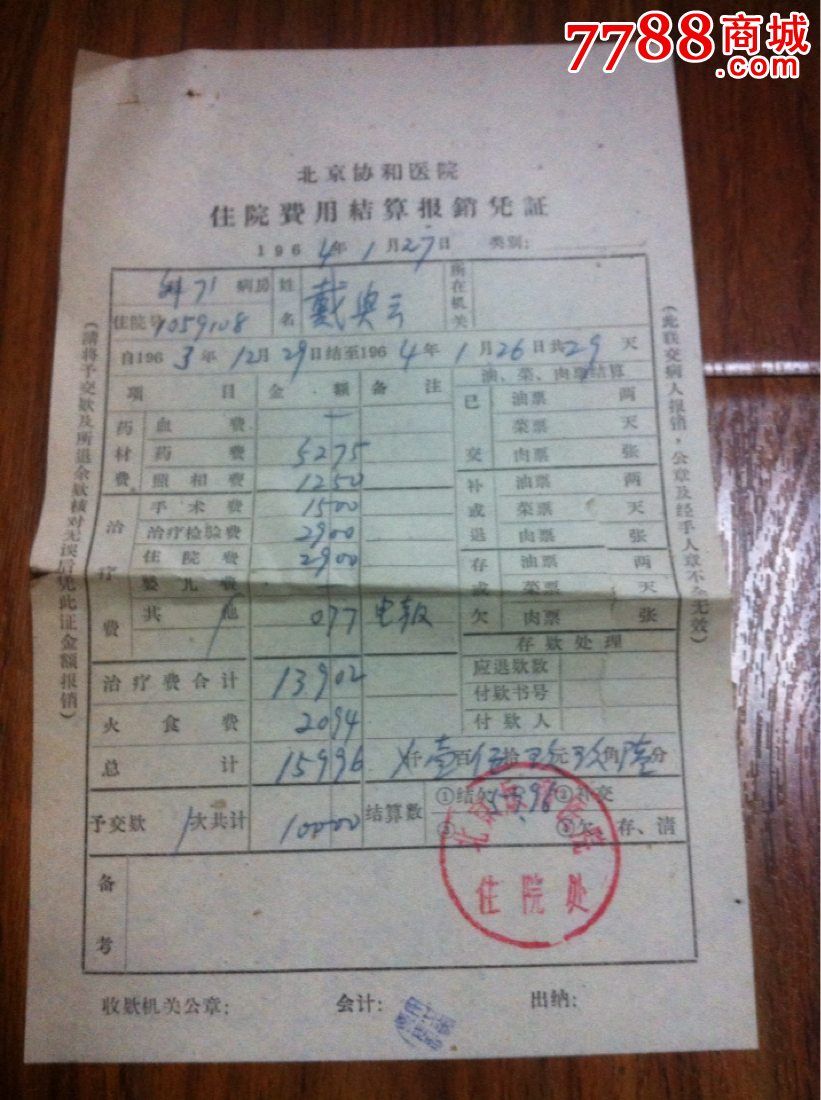 7788商城
.com
北京协和医院
住院費用结算报銷凭証
1964年1月27日 类别:
571 病房 姓名 戴奥云 所在机关
住院号 1059108
自1963年12月29日结至1964年1月26日共29天
项目 金額 备注 油、菜、肉票结算
药材费 血费 — 已交 油票 两
菜票 天
药费 5275 肉票 张
照相费 1250 补或退 油票 两
治疗费 手术费 1500 菜票 天
治疗检验费 2900 肉票 张
住院费 2900 存或欠 油票 两
婴儿费 — 菜票 天
其他 077 电报 肉票 张
存欵处理
治疗费合计 13902 应退欵数
付欵书号
火食费 2094 付欵人
总计 15996 仟壹百伍拾玖元玖角陸分
予交欵1次共计 10000 结算数 ①结欠5996 ②补交
③欠、存、清
备考
北京协和医院
住院处
收欵机关公章: 会计: 出纳:
(請将予交欵及所退余欵核对无误后凭此证金額报销)
(此联交病人报销,公章及经手人章不全无效)